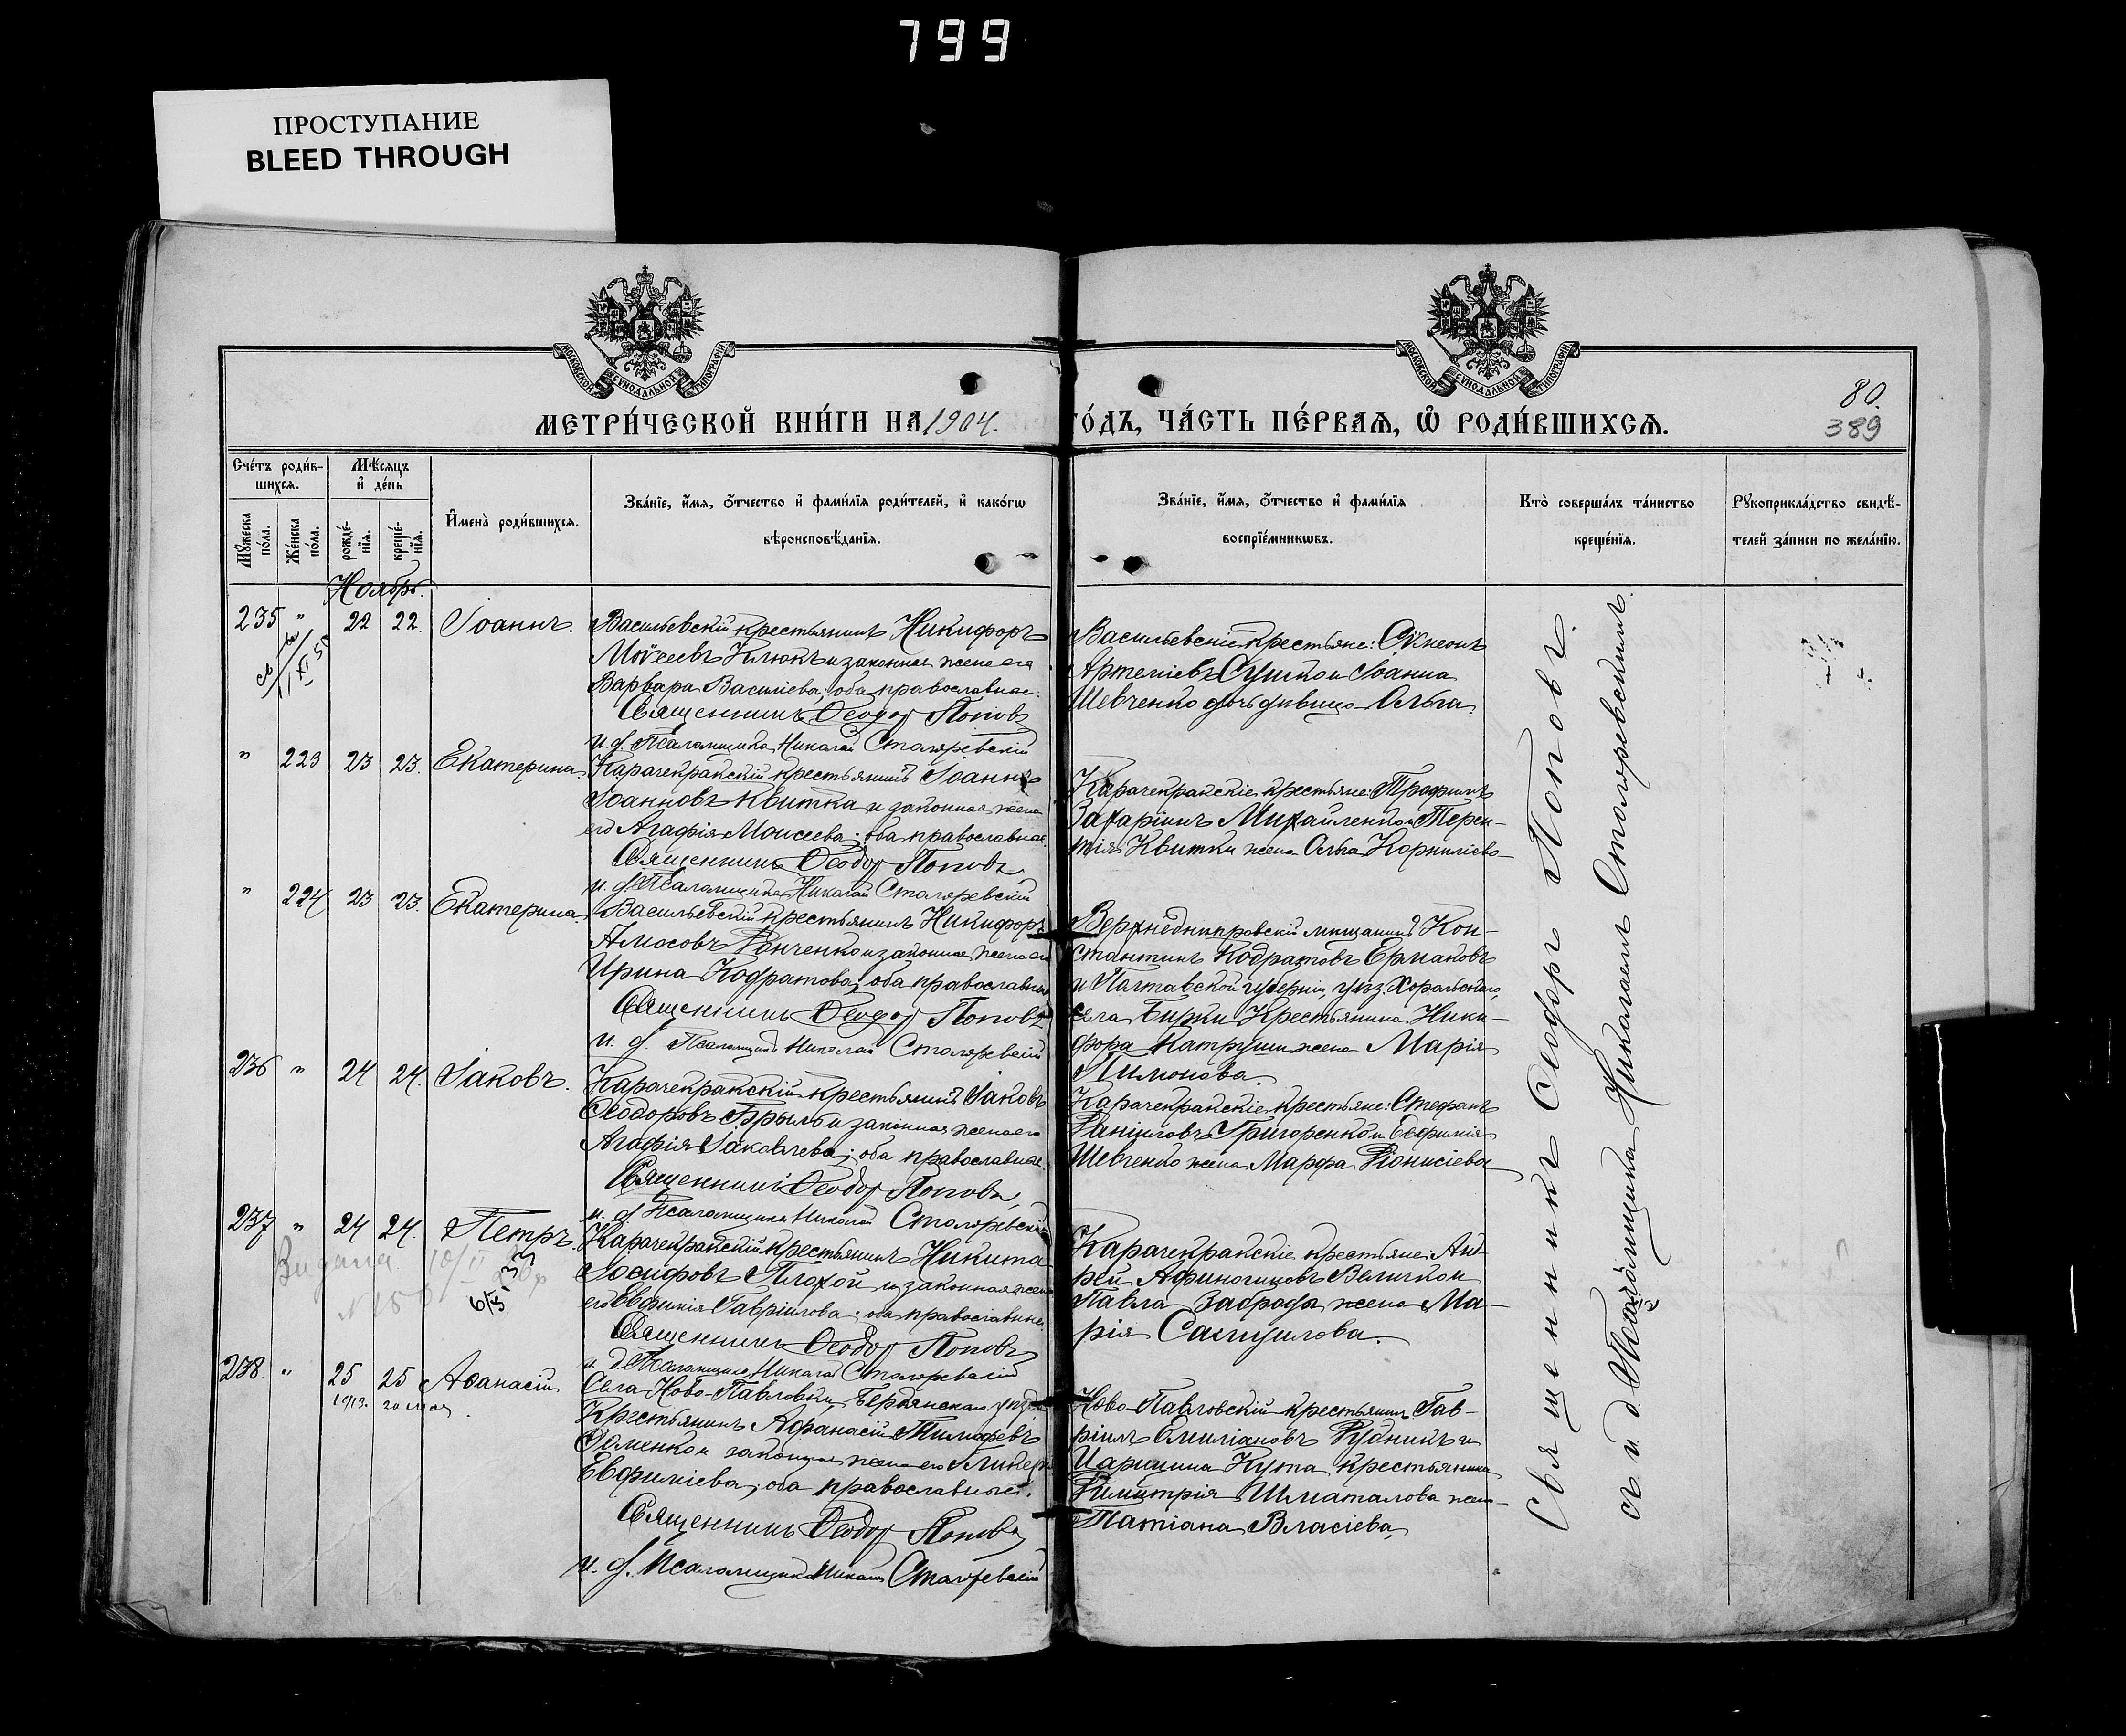 799
ПРОСТУПАНИЕ
BLEED THROUGH
МОСКОВСКОЙ СѴНОДАЛЬНОЙ ТИПОГРАФІИ
МОСКОВСКОЙ СѴНОДАЛЬНОЙ ТИПОГРАФІИ
80.
389
МЕТРИ́ЧЕСКОЙ КНИ́ГИ НА 1904. ГО́ДЪ, ЧА́СТЬ ПЕ́РВАѦ, Ѡ҆ РОДИ́ВШИХСѦ.
Счéтъ роди́в-
шихсѧ.
Мꙋ́жеска по́ла.
Же́нска по́ла.
Мѣ́сѧцъ и҆ де́нь
рожде́-нїѧ.
креще́-нїѧ.
И҆мена̀ роди́вшихсѧ.
Зва́нїе, и҆́мѧ, ѻ҆́тчество и҆ фами́лїѧ роди́телей, и҆ како́гѡ
вѣроисповѣ́данїѧ.
Зва́нїе, и҆́мѧ, ѻ҆́тчество и҆ фами́лїѧ
воспрїе́мникѡвъ.
Кто̀ соверша́лъ та́инство
креще́нїѧ.
Рꙋкоприкла́дство свидѣ́-
телей за́писи по жела́нїю.
Ноябрь.
235 " 22 22. Іоаннъ.
Васильевскій крестьянинъ Никифоръ
Моѵсеевъ Клюкъ и законная жена его
Варвара Василіева; оба православные.
Священникъ Ѳеодор Поповъ
И. д. Псаломщика Николай Столяревскій
Васильевскіе крестьяне: Сѵмеонъ
Артеміевъ Сушко и Іоанна
Шевченко дочь дѣвица Ольга.
" 223 23 23. Екатерина
Карачекракскій крестьянинъ Іоаннъ
Іоанновъ Квитка и законная жена
его Агафія Моисеева; оба православные.
Священникъ Ѳеодор Поповъ
и. д. Псаломщика Николай Столяревскій
Карачекракскіе крестьяне: Трофимъ
Захаріинъ Михайленко и Терен-
тія Квитки жена Ольга Корниліева
" 224 23 23. Екатерина
Васильевскій крестьянинъ Никифоръ
Амосовъ Ганченко и законная жена его
Ирина Кодратова; оба православные
Священникъ Ѳеодор Поповъ
и. д. Псаломщика Николай Столяревскій
Верхнеднепровскій мѣщанинъ Кон-
стантинъ Кодратовъ Ермаковъ
и Полтавской губерніи, уѣз. Хорольскаго,
села Бирки Крестьянина Ники-
фора Катруши жена Марія
Пимонова.
236 " 24 24. Іаковъ.
Карачекракскій крестьянинъ Іаковъ
Ѳеодоровъ Брыль и законная жена его
Агафія Іаковлева; оба православные.
Священникъ Ѳеодор Поповъ
и. д. Псаломщика Николай Столяревскій
Карачекракскіе крестьяне: Стефанъ
Даніиловъ Григоренко и Евфимія
Шевченко жена Марфа Діонисіева
237 " 24 24. Петръ.
Карачекракскій крестьянинъ Никита
Іосифовъ Плохой и законная жена
его Евфимія Гавріилова; оба православные.
Священникъ Ѳеодор Поповъ
и. д. Псаломщика Николай Столяревскій
Карачекракскіе крестьяне: Анд-
рей Афиногеновъ Величко и
Павла Заброды жена Ма-
рія Самуилова.
238. " 25 25 Аѳанасій
1913. 20 мая
Села Ново-Павловки Бердянскаго уѣзда
Крестьянинъ Афанасій Тимофеевъ
и законная жена его
Евфиміева; оба православные.
Священникъ Ѳеодор Поповъ
и. д. Псаломщика Николай Столяревскій
Ново-Павловскій крестьянинъ Гав-
ріилъ Емиліановъ Рудникъ и
Царицина Кута крестьянина
Димитрія Шматалова жена
Татіана Власіева
Священникъ Ѳеодоръ Поповъ.
съ и. д. Псаломщика Николаемъ Столяревскимъ.